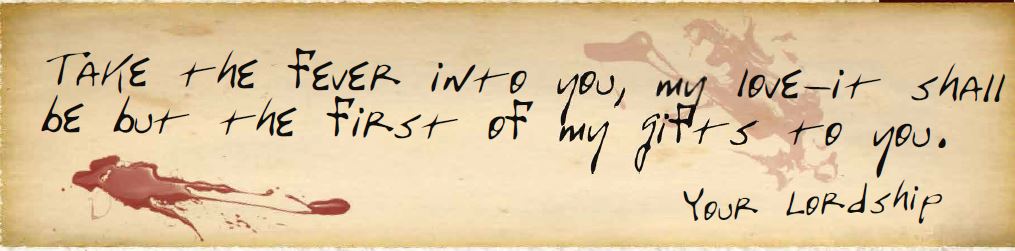 Take the fever into you, my love—it shall
be but the first of my gifts to you.
Your Lordship